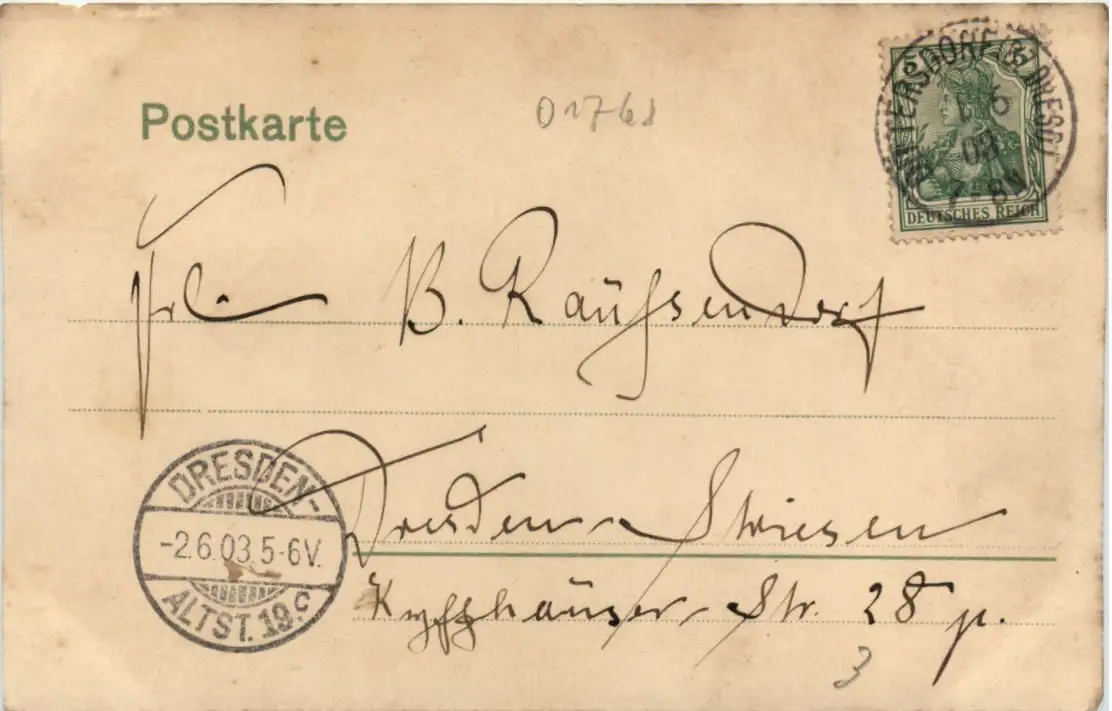 Postkarte
01768
5
DEUTSCHES REICH
1 6
03
7-8N
Frl. B. Raußendorf
DRESDEN-
-2.6.03.5-6V.
ALTST. 19.c
Dresden-Striesen
Kyffhäuser-Str. 28 p.
3